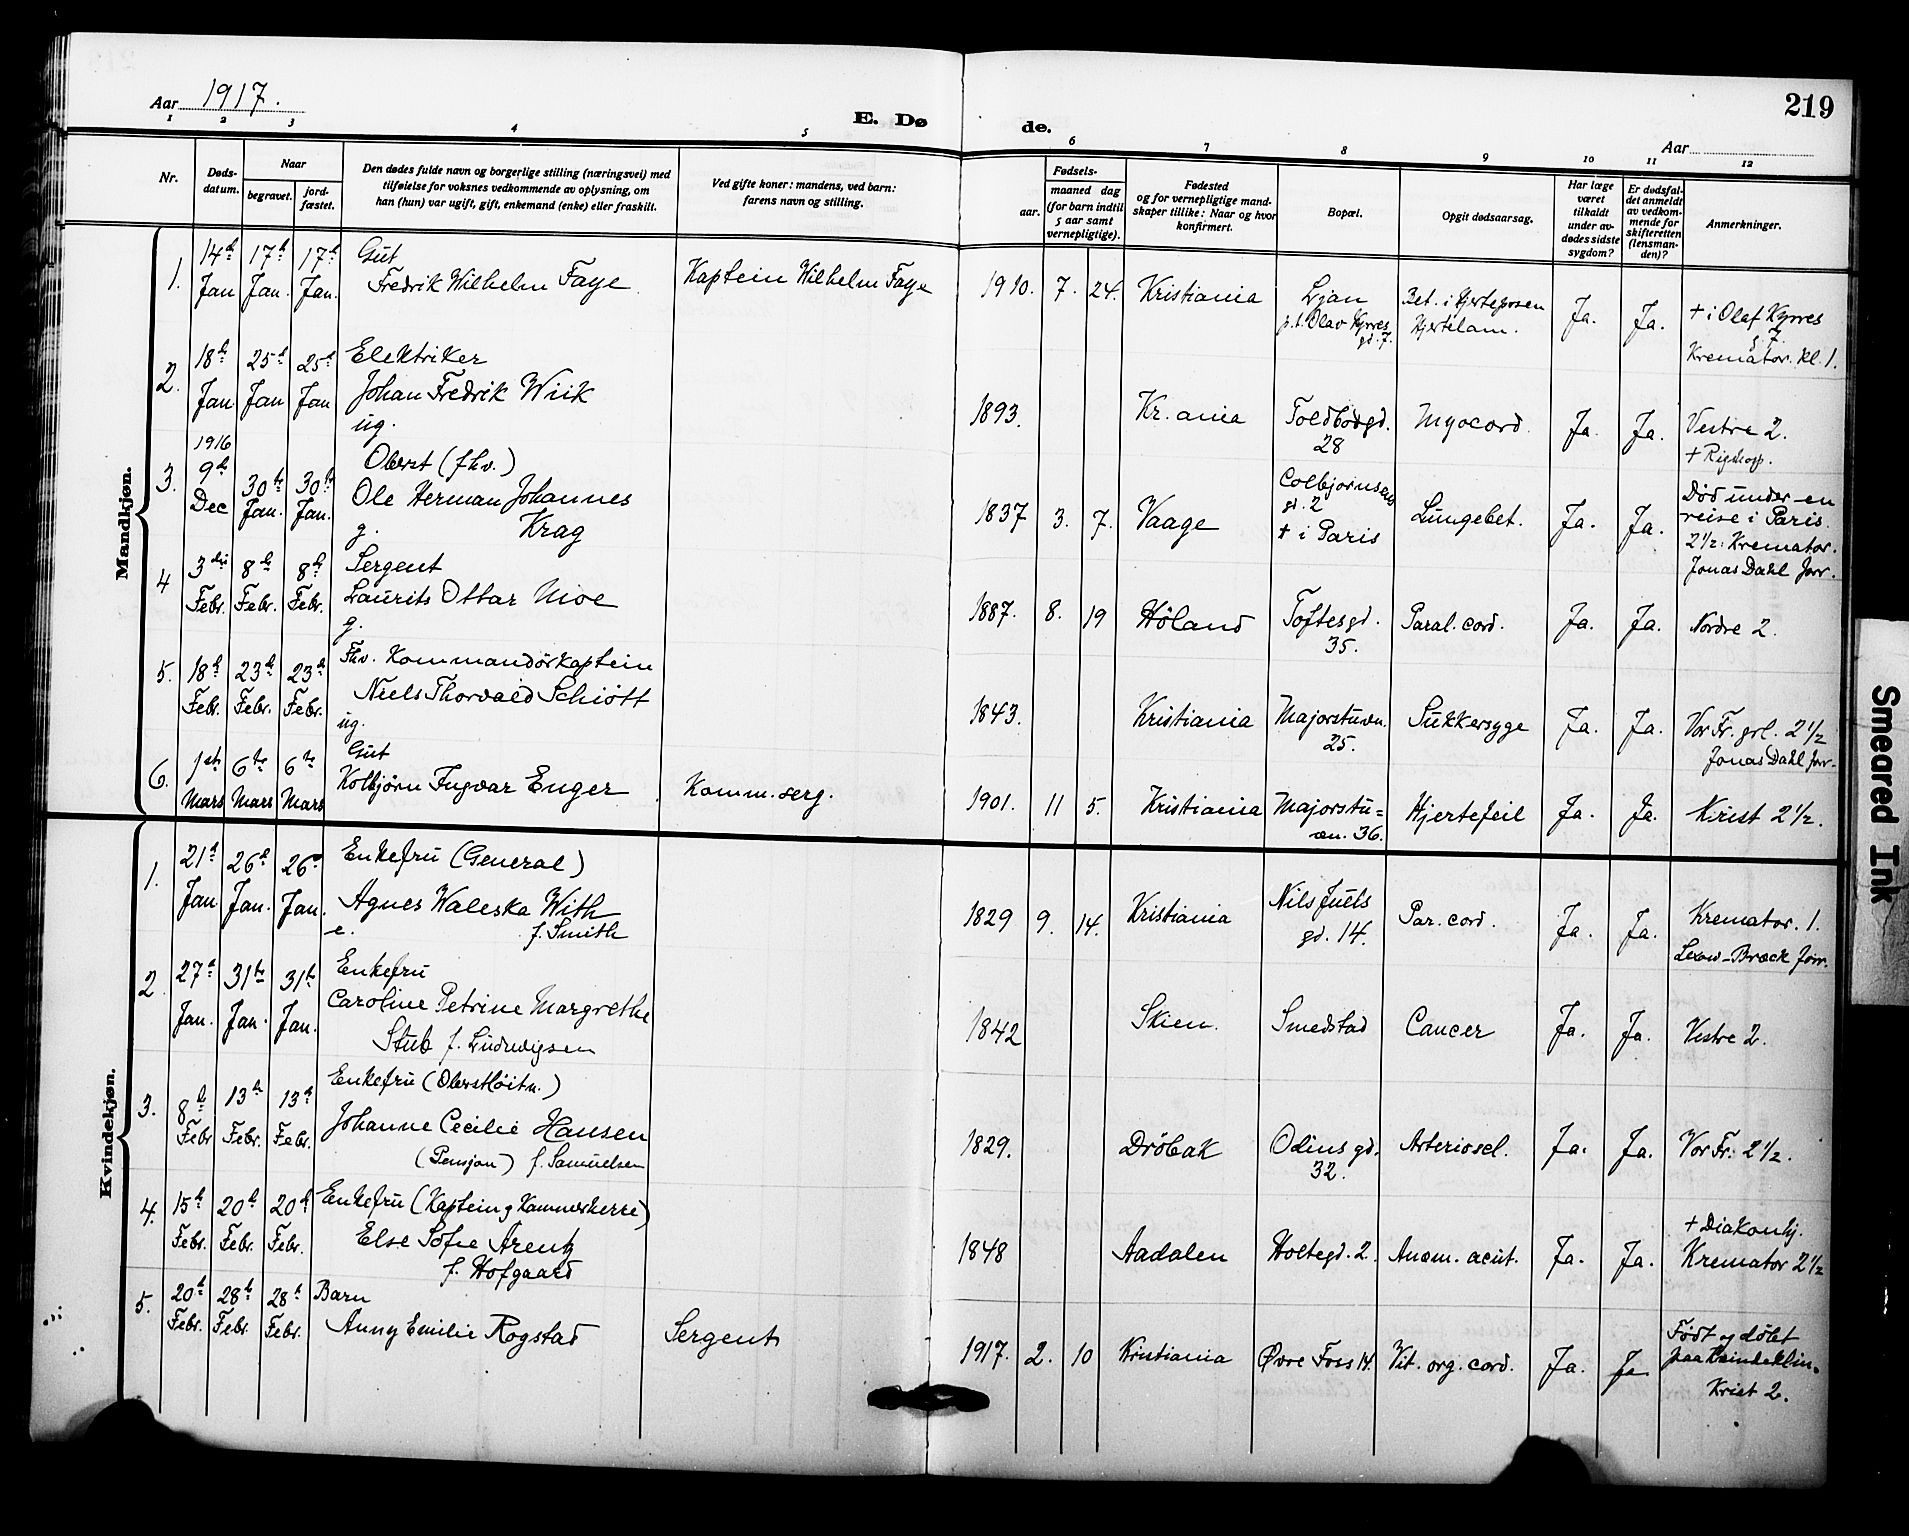 Aar 1917.
E. Dø de.
219
Aar
1 2 3 4 5 6 7 8 9 10 11 12
Nr.
Døds-
datum.
Naar
begravet.
jord-
fæstet.
Den dødes fulde navn og borgerlige stilling (næringsvei) med
tilføielse for voksnes vedkommende av oplysning, om
han (hun) var ugift, gift, enkemand (enke) eller fraskilt.
Ved gifte koner: mandens, ved barn:
farens navn og stilling.
Fødsels-
aar.
maaned dag
(for barn indtil
5 aar samt
vernepligtige).
Fødested
og for vernepligtige mand-
skaper tillike: Naar og hvor
konfirmert.
Bopæl.
Opgit dødsaarsag.
Har læge
været
tilkaldt
under av-
dødes sidste
sygdom?
Er dødsfal-
det anmeldt
av vedkom-
mende for
skifteretten
(lensman-
den)?
Anmerkninger.
Mandkjøn.
1. 14de Jan 17de Jan. 17de Jan.
Gut
Fredrik Wilhelm Faye
Kaptein Wilhelm Faye
1910. 7. 24. Kristiania
Ljan
p.t. Olav Kyrres
gd. 7.
Bet. i Hjerteposen
Hjertelam.
Ja. Ja.
+ i Olaf Kyrres
g. 7.
Kremator. kl. 1.
2. 18de Jan. 25de Jan 25de Jan
Elektriker
Johan Fredrik Wiik
ug.
1893. Kr.ania
Toldbodgd.
28
Myocord. Ja. Ja.
Vestre 2.
+ Rigshosp.
3. 1916 9de Dec 30te Jan. 30te Jan.
Oberst (fhv.)
Ole Herman Johannes
g. Krag
1837 3. 7. Vaage
Colbjørnsens
gd. 2
+ i Paris
Lungebet. Ja. Ja.
Død under en
reise i Paris.
2½: Kremator.
Jonas Dahl forr.
4 3die Febr. 8de Febr. 8de Febr.
Sergent
Laurits Ottar Moe
g.
1887. 8. 19 Høland
Toftesgd.
35.
Paral. cord. Ja. Ja. Nordre 2.
5. 18de Febr. 23de Febr. 23de Febr.
Fhv. Kommandørkaptein
Niels Thorvald Schiøtt
ug.
1843. Kristiania
Majorstuvn.
25.
Sukkersyge Ja. Ja.
Vor Fr. grl. 2½
Jonas Dahl forr.
6. 1ste Mars 6te Mars 6te Mars
Gut
Kolbjørn Ingvar Enger
Komm. serg.
1901. 11 5. Kristiania
Majorstu=
vn. 36.
Hjertefeil Ja. Ja. Krist 2½.
Kvindekjøn.
1. 21de Jan 26de Jan. 26de Jan.
Enkefru (General)
Agnes Waleska With
e. f. Smith
1829 9. 14. Kristiania
Nils Juels
gd. 14.
Par. cord. Ja. Ja.
Kremator. 1.
Lexow-Bræck forr.
2 27de Jan. 31te Jan. 31te Jan.
Enkefru
Caroline Petrine Margrethe
Stub f. Ludvigsen
1842 Skien. Smedstad Cancer Ja. Ja. Vestre 2.
3. 8de Febr 13de Febr. 13de Febr.
Enkefru (Oberstløitn.)
Johanne Cecilie Hansen
(Pensjon) f. Samuelsen
1829. Drøbak
Odins gd.
32.
Arterioscl. Ja. Ja. Vor Fr: 2½.
4. 15de Febr. 20de Febr. 20de Febr.
Enkefru (Kaptein og Kammerherre)
Else Sofie Arentz
f. Hofgaard
1848 Aadalen Holtegd. 2. Anæm. acut. Ja. Ja.
+ Diakonhj.
Kremator 2½
5. 20de Febr. 28de Febr. 28de Febr.
Barn
Anny Emilie Rogstad
Sergent
1917. 2. 10 Kristiania Øvre Foss 14. Vit. org. cord. Ja. Ja
Født og døbt
paa Kvindeklin.
Krist 2.
Smeared Ink